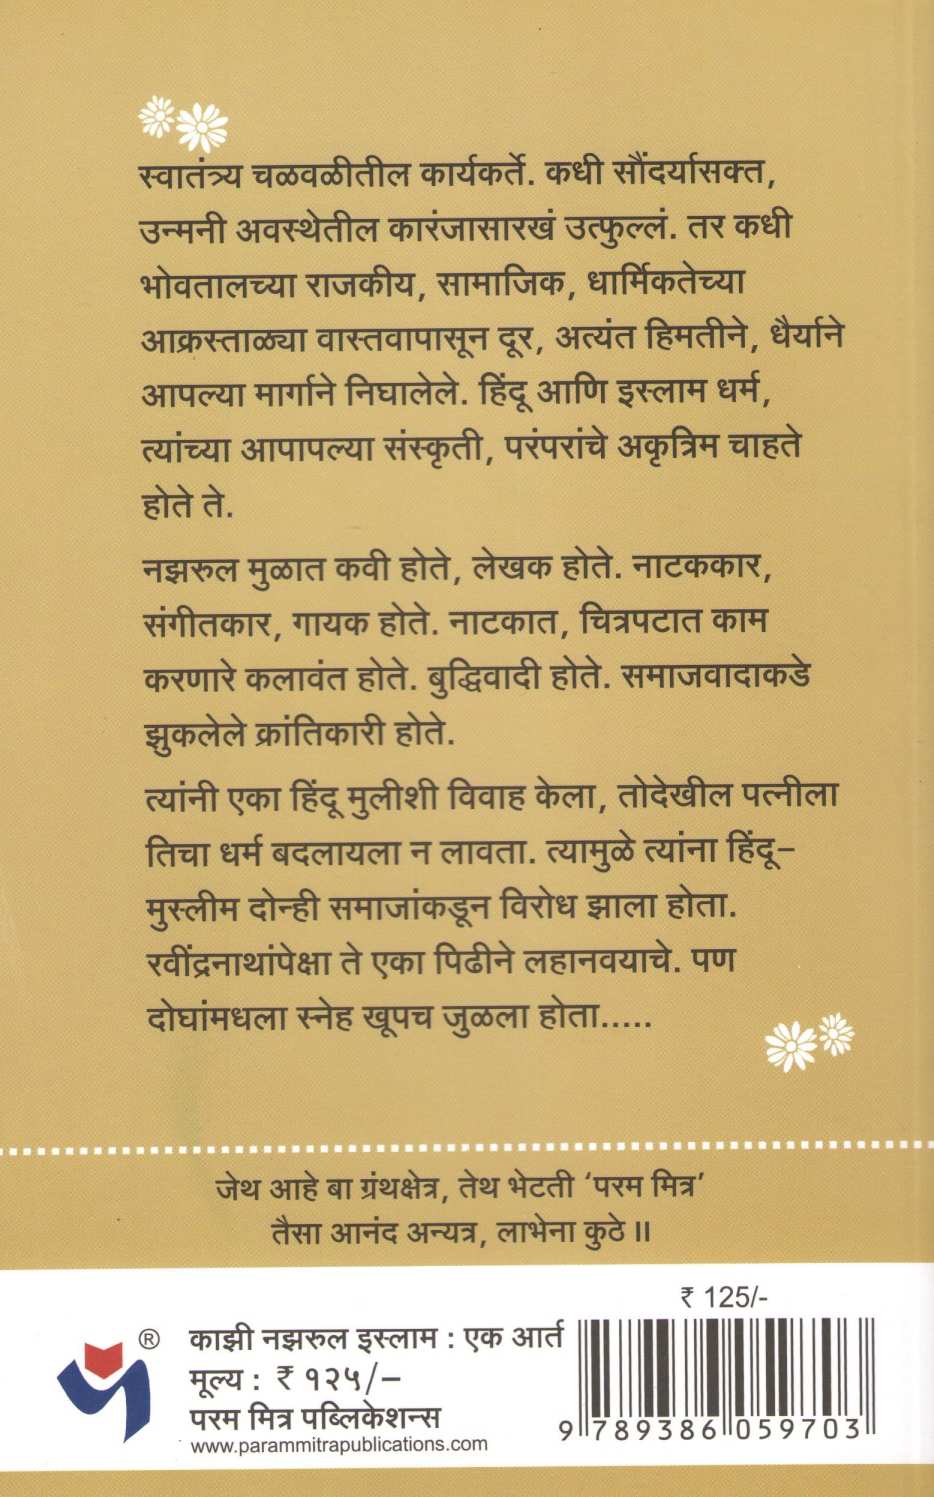 स्वातंत्र्य चळवळीतील कार्यकर्ते. कधी सौंदर्यासक्त,
उन्मनी अवस्थेतील कारंजासारखं उत्फुल्लं. तर कधी
भोवतालच्या राजकीय, सामाजिक, धार्मिकतेच्या
आक्रस्ताळ्या वास्तवापासून दूर, अत्यंत हिमतीने, धैर्याने
आपल्या मार्गाने निघालेले. हिंदू आणि इस्लाम धर्म,
त्यांच्या आपापल्या संस्कृती, परंपरांचे अकृत्रिम चाहते
होते ते.
नझरुल मुळात कवी होते, लेखक होते. नाटककार,
संगीतकार, गायक होते. नाटकात, चित्रपटात काम
करणारे कलावंत होते. बुद्धिवादी होते. समाजवादाकडे
झुकलेले क्रांतिकारी होते.
त्यांनी एका हिंदू मुलीशी विवाह केला, तोदेखील पत्नीला
तिचा धर्म बदलायला न लावता. त्यामुळे त्यांना हिंदू–
मुस्लीम दोन्ही समाजांकडून विरोध झाला होता.
रवींद्रनाथांपेक्षा ते एका पिढीने लहानवयाचे. पण
दोघांमधला स्नेह खूपच जुळला होता.....
जेथ आहे बा ग्रंथक्षेत्र, तेथ भेटती ‘परम मित्र’
तैसा आनंद अन्यत्र, लाभेना कुठे ॥
₹ 125/-
® काझी नझरुल इस्लाम : एक आर्त
मूल्य : ₹ १२५/–
परम मित्र पब्लिकेशन्स
www.parammitrapublications.com
9 789386 059703